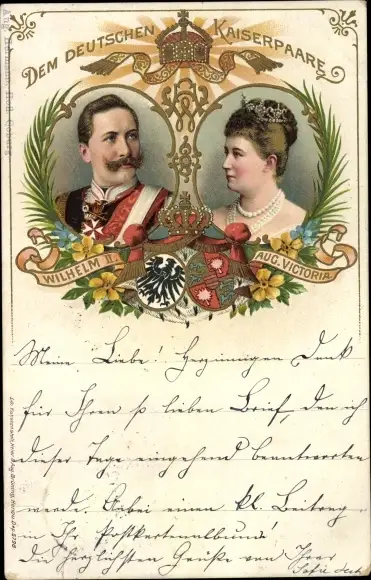 DEM DEUTSCHEN KAISERPAARE
WILHELM II.
AUG. VICTORIA.
Meine Liebe! Herzinnigen Dank
für Ihren so lieben Brief, den ich
dieser Tage eingehend beantworten
werde. Anbei einen kl. Beitrag
in Ihr Postkartenalbum!
Die herzlichsten Grüße von Ihrer
Sofie